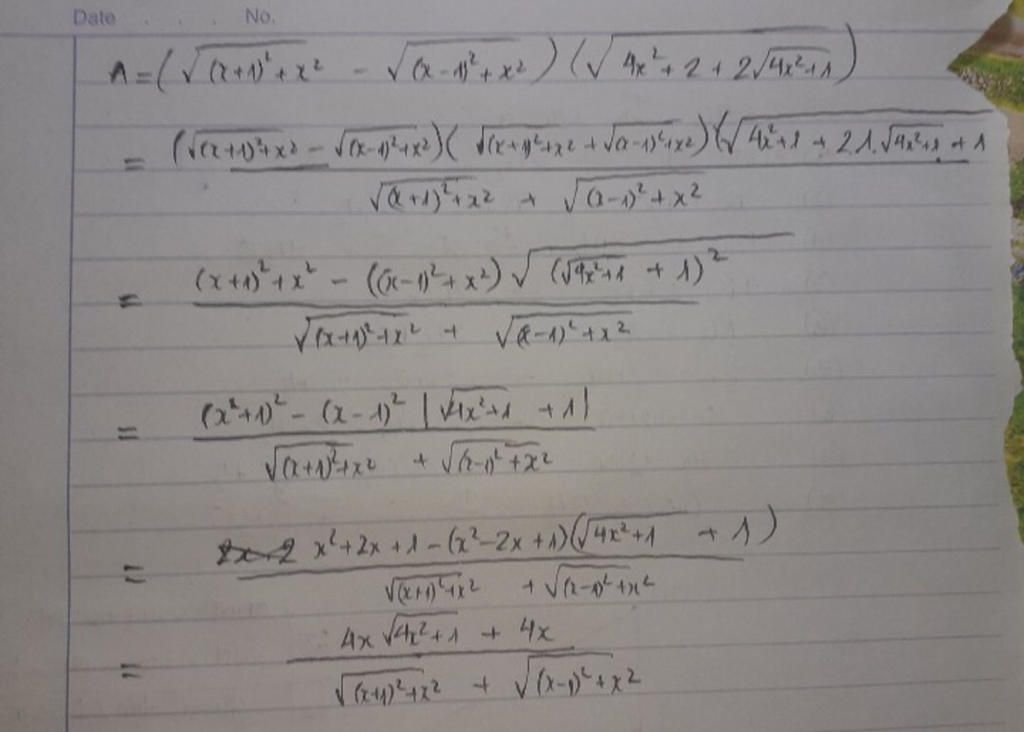 Date . . . No.
A = (√((x+1)² + x²) − √((x−1)² + x²)) (√(4x² + 2 + 2√(4x²+1)))
= (√((x+1)²+x²) − √((x−1)²+x²)) (√((x+1)²+x²) + √((x−1)²+x²)) (√(4x²+1 + 2.1.√(4x²+1) + 1)
√((x+1)²+x²) + √((x−1)²+x²)
= (x+1)² + x² − ((x−1)² + x²) √((√(4x²+1) + 1)²)
√((x+1)²+x²) + √((x−1)²+x²)
= (x²+1)² − (x−1)² |√(4x²+1) + 1|
√((x+1)²+x²) + √((x−1)²+x²)
= x²+2x+1−(x²−2x+1)(√(4x²+1) + 1)
√((x+1)²+x²) + √((x−1)²+x²)
= 4x√(4x²+1) + 4x
√((x+1)²+x²) + √((x−1)²+x²)